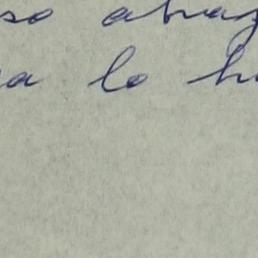 so abraz
a lo h